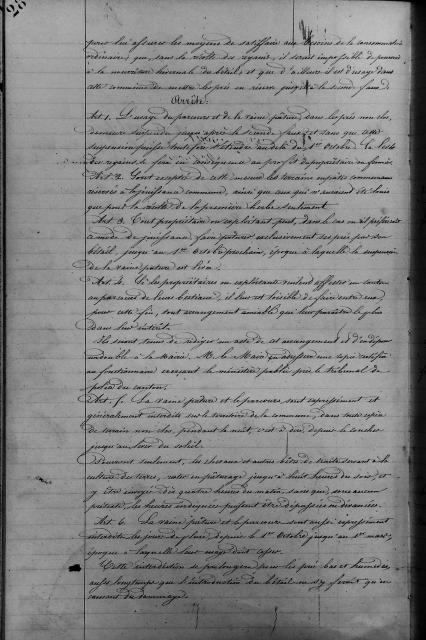 28
pour lui assurer les moyens de satisfaire aux besoins de la consommation
ordinaire; que, sans la récolte des regains, il serait impossible de pourvoir
à la nourriture hivernale du bétail, et que d'ailleurs il est d'usage dans
cette commune de mettre les prés en réserve jusqu'à la seconde faux.
Arrête:
Art. 1. L'usage du parcours et de la vaine pâture, dans les prés non clos,
demeure suspendu jusqu'après la seconde faux, et sans que cette
suspension puisse toutefois s'étendre au delà du 1er Octobre. La récolte
des regains se fera en conséquence au profit du propriétaire ou fermier.
Art. 2. Sont exceptés de cette mesure les terrains en prairies
réservés à la jouissance commune, ainsi que ceux qui n'auraient été loués
que pour la récolte de la première herbe seulement.
Art. 3. Tout propriétaire ou exploitant peut, dans le cas où il préférerait
ce mode de jouissance, faire pâturer exclusivement ses prés par son
bétail, jusqu'au 1er Octobre prochain, époque à laquelle la suspension
de la vaine pâture est levée.
Art. 4. Si les propriétaires ou exploitants veulent affecter en commun
au parcours de leurs bestiaux, il leur est loisible de faire entre eux,
pour cette fin, tout arrangement amiable qui leur paraîtra le plus
dans leur intérêt.
Ils seront tenus de rédiger un acte de cet arrangement et d'en déposer
un double à la Mairie. M. le Maire en adressera une copie certifiée
au fonctionnaire exerçant le ministère public près le tribunal de
police du canton.
Art. 5. La vaine pâture et le parcours sont expressément et
généralement interdits sur le territoire de la commune, dans toute espèce
de terrain non clos, pendant la nuit, c'est à dire, depuis le coucher
jusqu'au lever du soleil.
Pourront seulement, les chevaux et autres bêtes de trait servant à la
culture des terres, rester en pâturage jusqu'à huit heures du soir, et
y être envoyés dès quatre heures du matin, sans que, sous aucun
prétexte, les heures indiquées puissent être dépassées ni devancées.
Art. 6. La vaine pâture et le parcours sont aussi expressément
interdits les jours de pluie, depuis le 1er Octobre jusqu'au 1er mars,
époque à laquelle leur usage doit cesser.
Cette interdiction se prolongera pour les prés bas et humides,
aussi longtemps que l'introduction du bétail ne s'y ferait qu'en
causant du dommage.